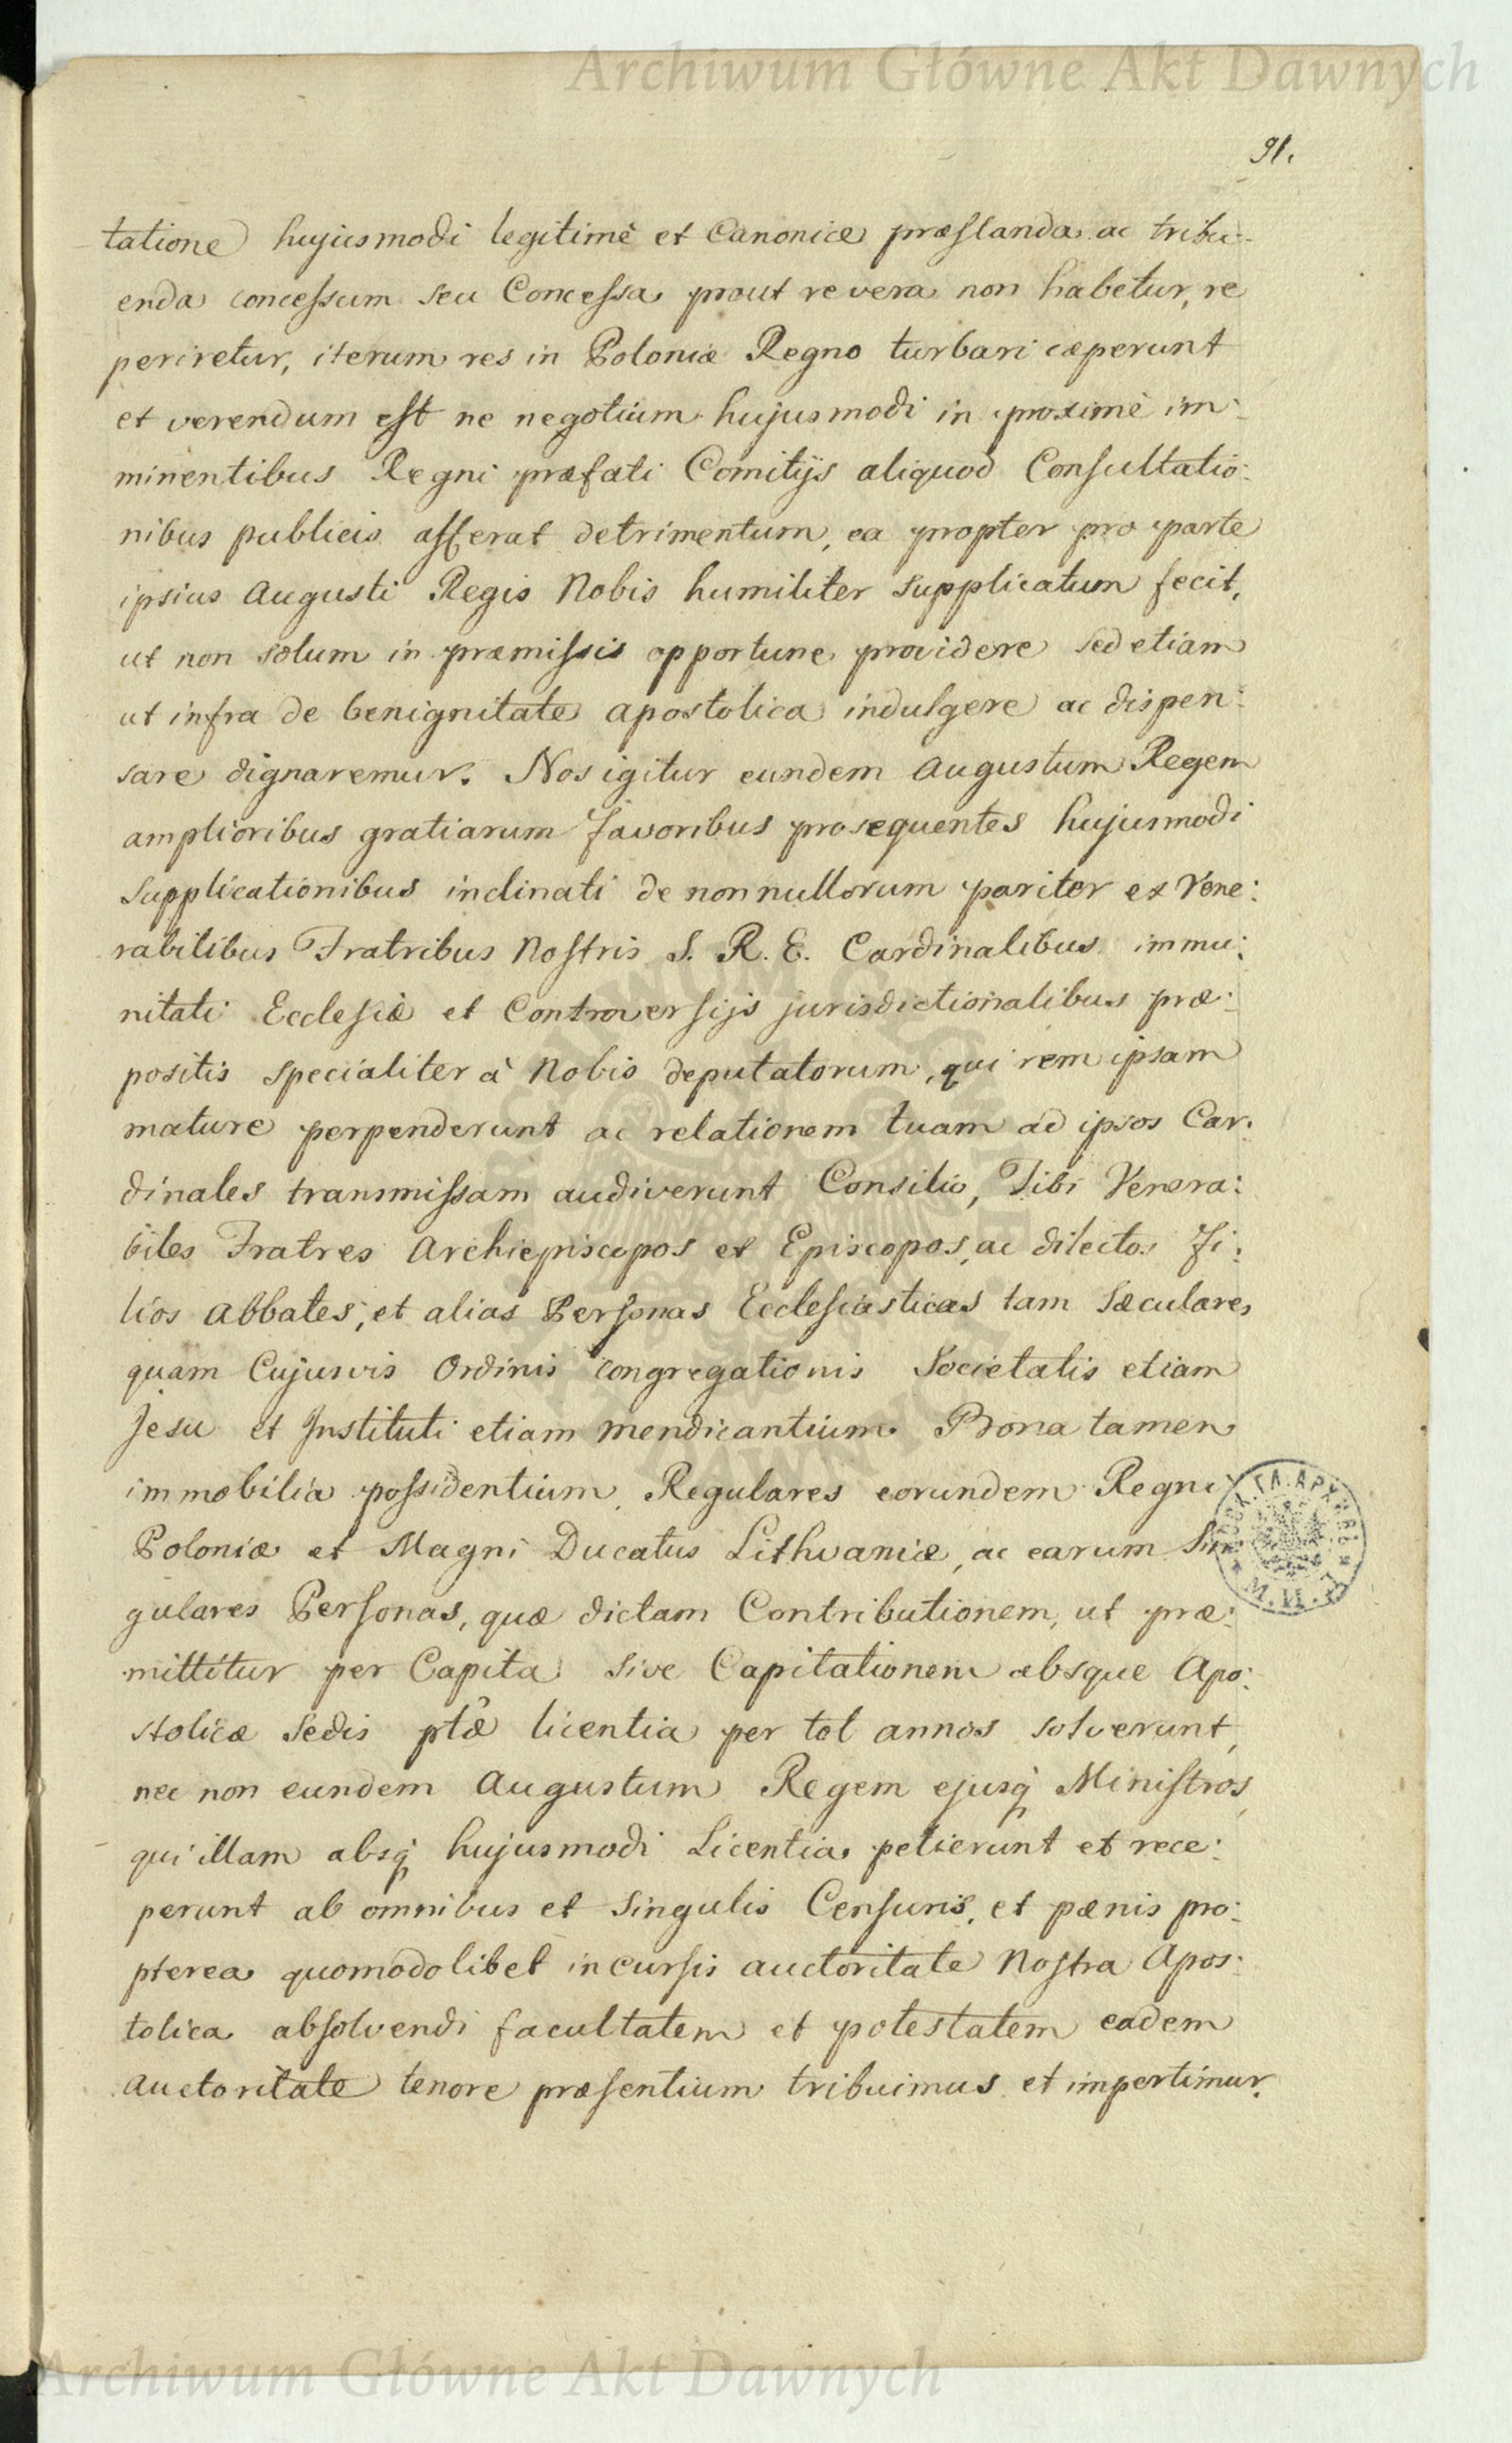 Archiwum Główne Akt Dawnych
91.
tatione hujusmodi legitimè et Canonice præstanda ac tribu-
enda concessum seu Concessa prout re vera non habetur, re
periretur, iterum res in Poloniæ Regno turbari cæperunt
et verendum est ne negotium hujusmodi in proximè im:
minentibus Regni præfati Comitijs aliquod Consultatio:
nibus publicis afferat detrimentum, ea propter pro parte
ipsius Augusti Regis Nobis humiliter supplicatum fecit,
ut non solum in præmissis opportune providere sed etiam
ut infra de benignitate apostolica indulgere ac dispen:
sare dignaremur. Nos igitur eundem Augustum Regem
amplioribus gratiarum favoribus prosequentes hujusmodi
supplicationibus inclinati de nonnullorum pariter ex Vene:
rabilibus Fratribus Nostris S. R. E. Cardinalibus immu:
nitati Ecclesiæ et Controversijs jurisdictionalibus præ:
positis specialiter à Nobis deputatorum, qui rem ipsam
mature perpenderunt ac relationem tuam ad ipsos Car.
dinales transmissam audiverunt Consilio, Tibi Venera:
biles Fratres Archiepiscopos et Episcopos, ac dilectos Fi:
lios Abbates, et alias Personas Ecclesiasticas tam Sæculares
quam Cujusvis Ordinis congregationis Societatis etiam
Jesu et Instituti etiam mendicantium. Bona tamen
immobilia possidentium, Regulares eorundem Regni
Poloniæ et Magni Ducatus Lithvaniæ, ac earum Sin
gulares Personas, quæ dictam Contributionem, ut præ:
mittitur per Capita sive Capitationem absque Apo:
stolicæ Sedis ptæ licentia per tot annos solverunt,
nec non eundem Augustum Regem ejusq Ministros,
qui illam absq hujusmodi Licentia petierunt et rece:
perunt ab omnibus et singulis Censuris, et pænis pro:
pterea quomodolibet incursis auctoritate Nostra Apos:
tolica absolvendi facultatem et potestatem eadem
auctoritate tenore præsentium tribuimus et impertimur.
Archiwum Główne Akt Dawnych